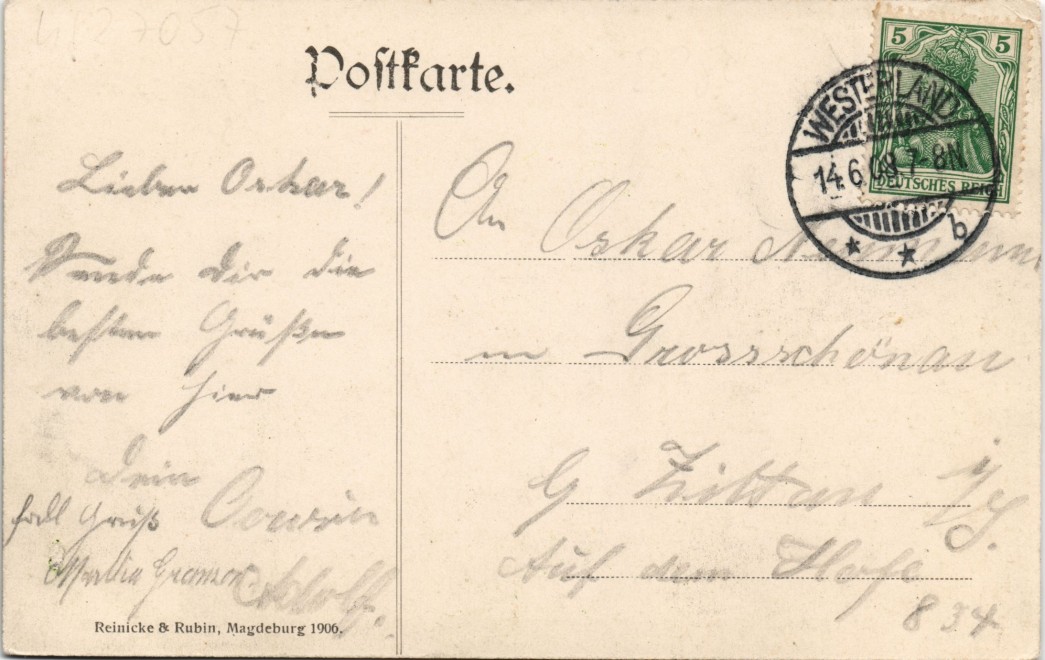 4127057
Postkarte.
5 5
DEUTSCHES REICH
WESTERLAND
14.6.08.7-8N
b
Lieber Oskar!
Sende Dir die
besten Grüße
von hier
Dein
Cousin
Adolf.
Gruß
An Oskar Neumann
in Grossschönau
b Zittau i/S.
Auf dem Hofe
834
Reinicke & Rubin, Magdeburg 1906.